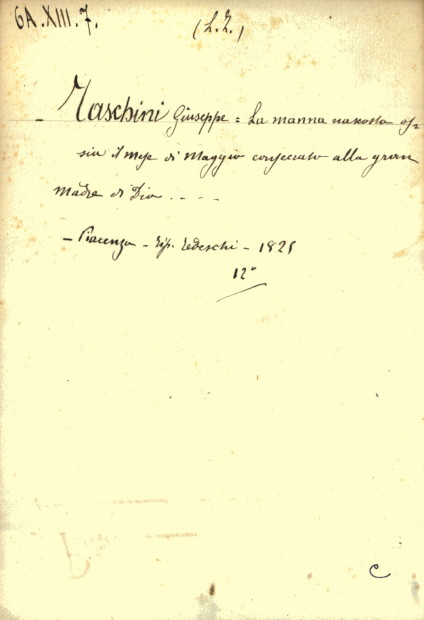 6A.XIII.7.
(L.L.)
- Taschini Giuseppe = La manna nascosta os-
sia il mese di Maggio consecrato alla gran
madre di Dio . _ _ _
- Piacenza - Tip. Tedeschi - 1825
12°
C